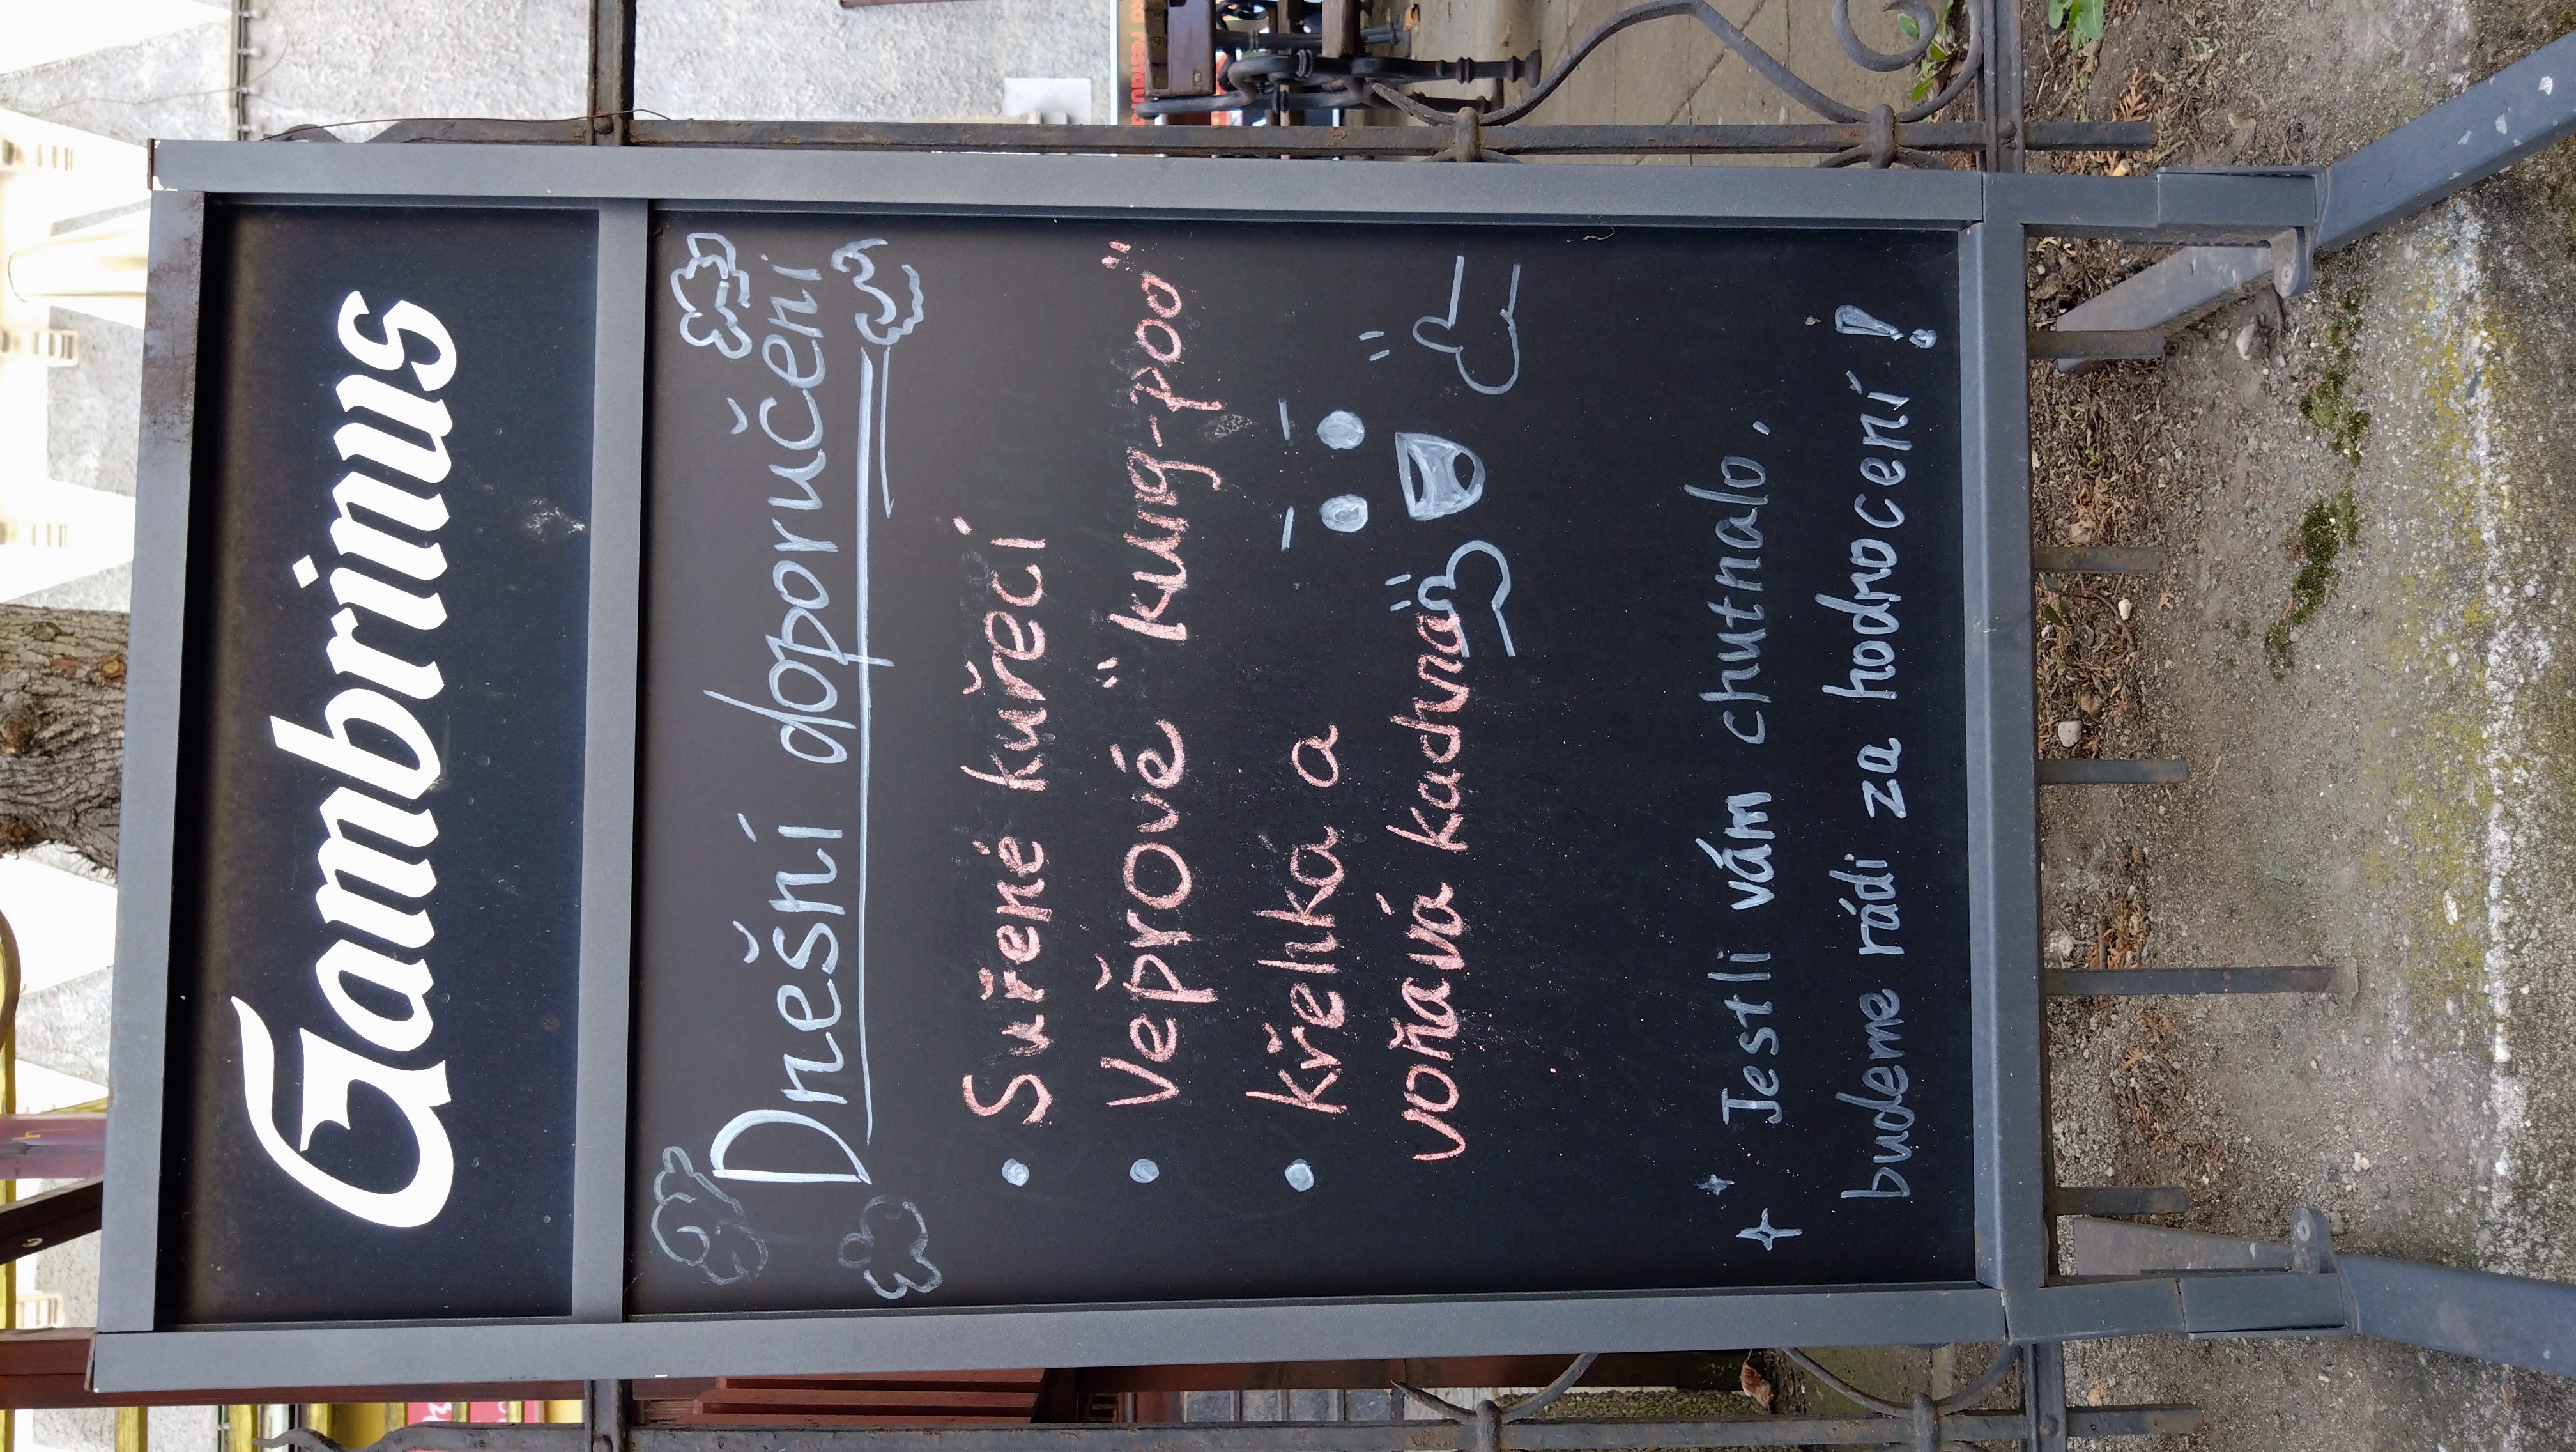 Gambrinus
Dnešní doporučení
• Suřené kuřecí
• Vepřové "kung-poo"
• křehká a
voňavá kachna
Jestli vám chutnalo,
budeme rádi za hodnocení!